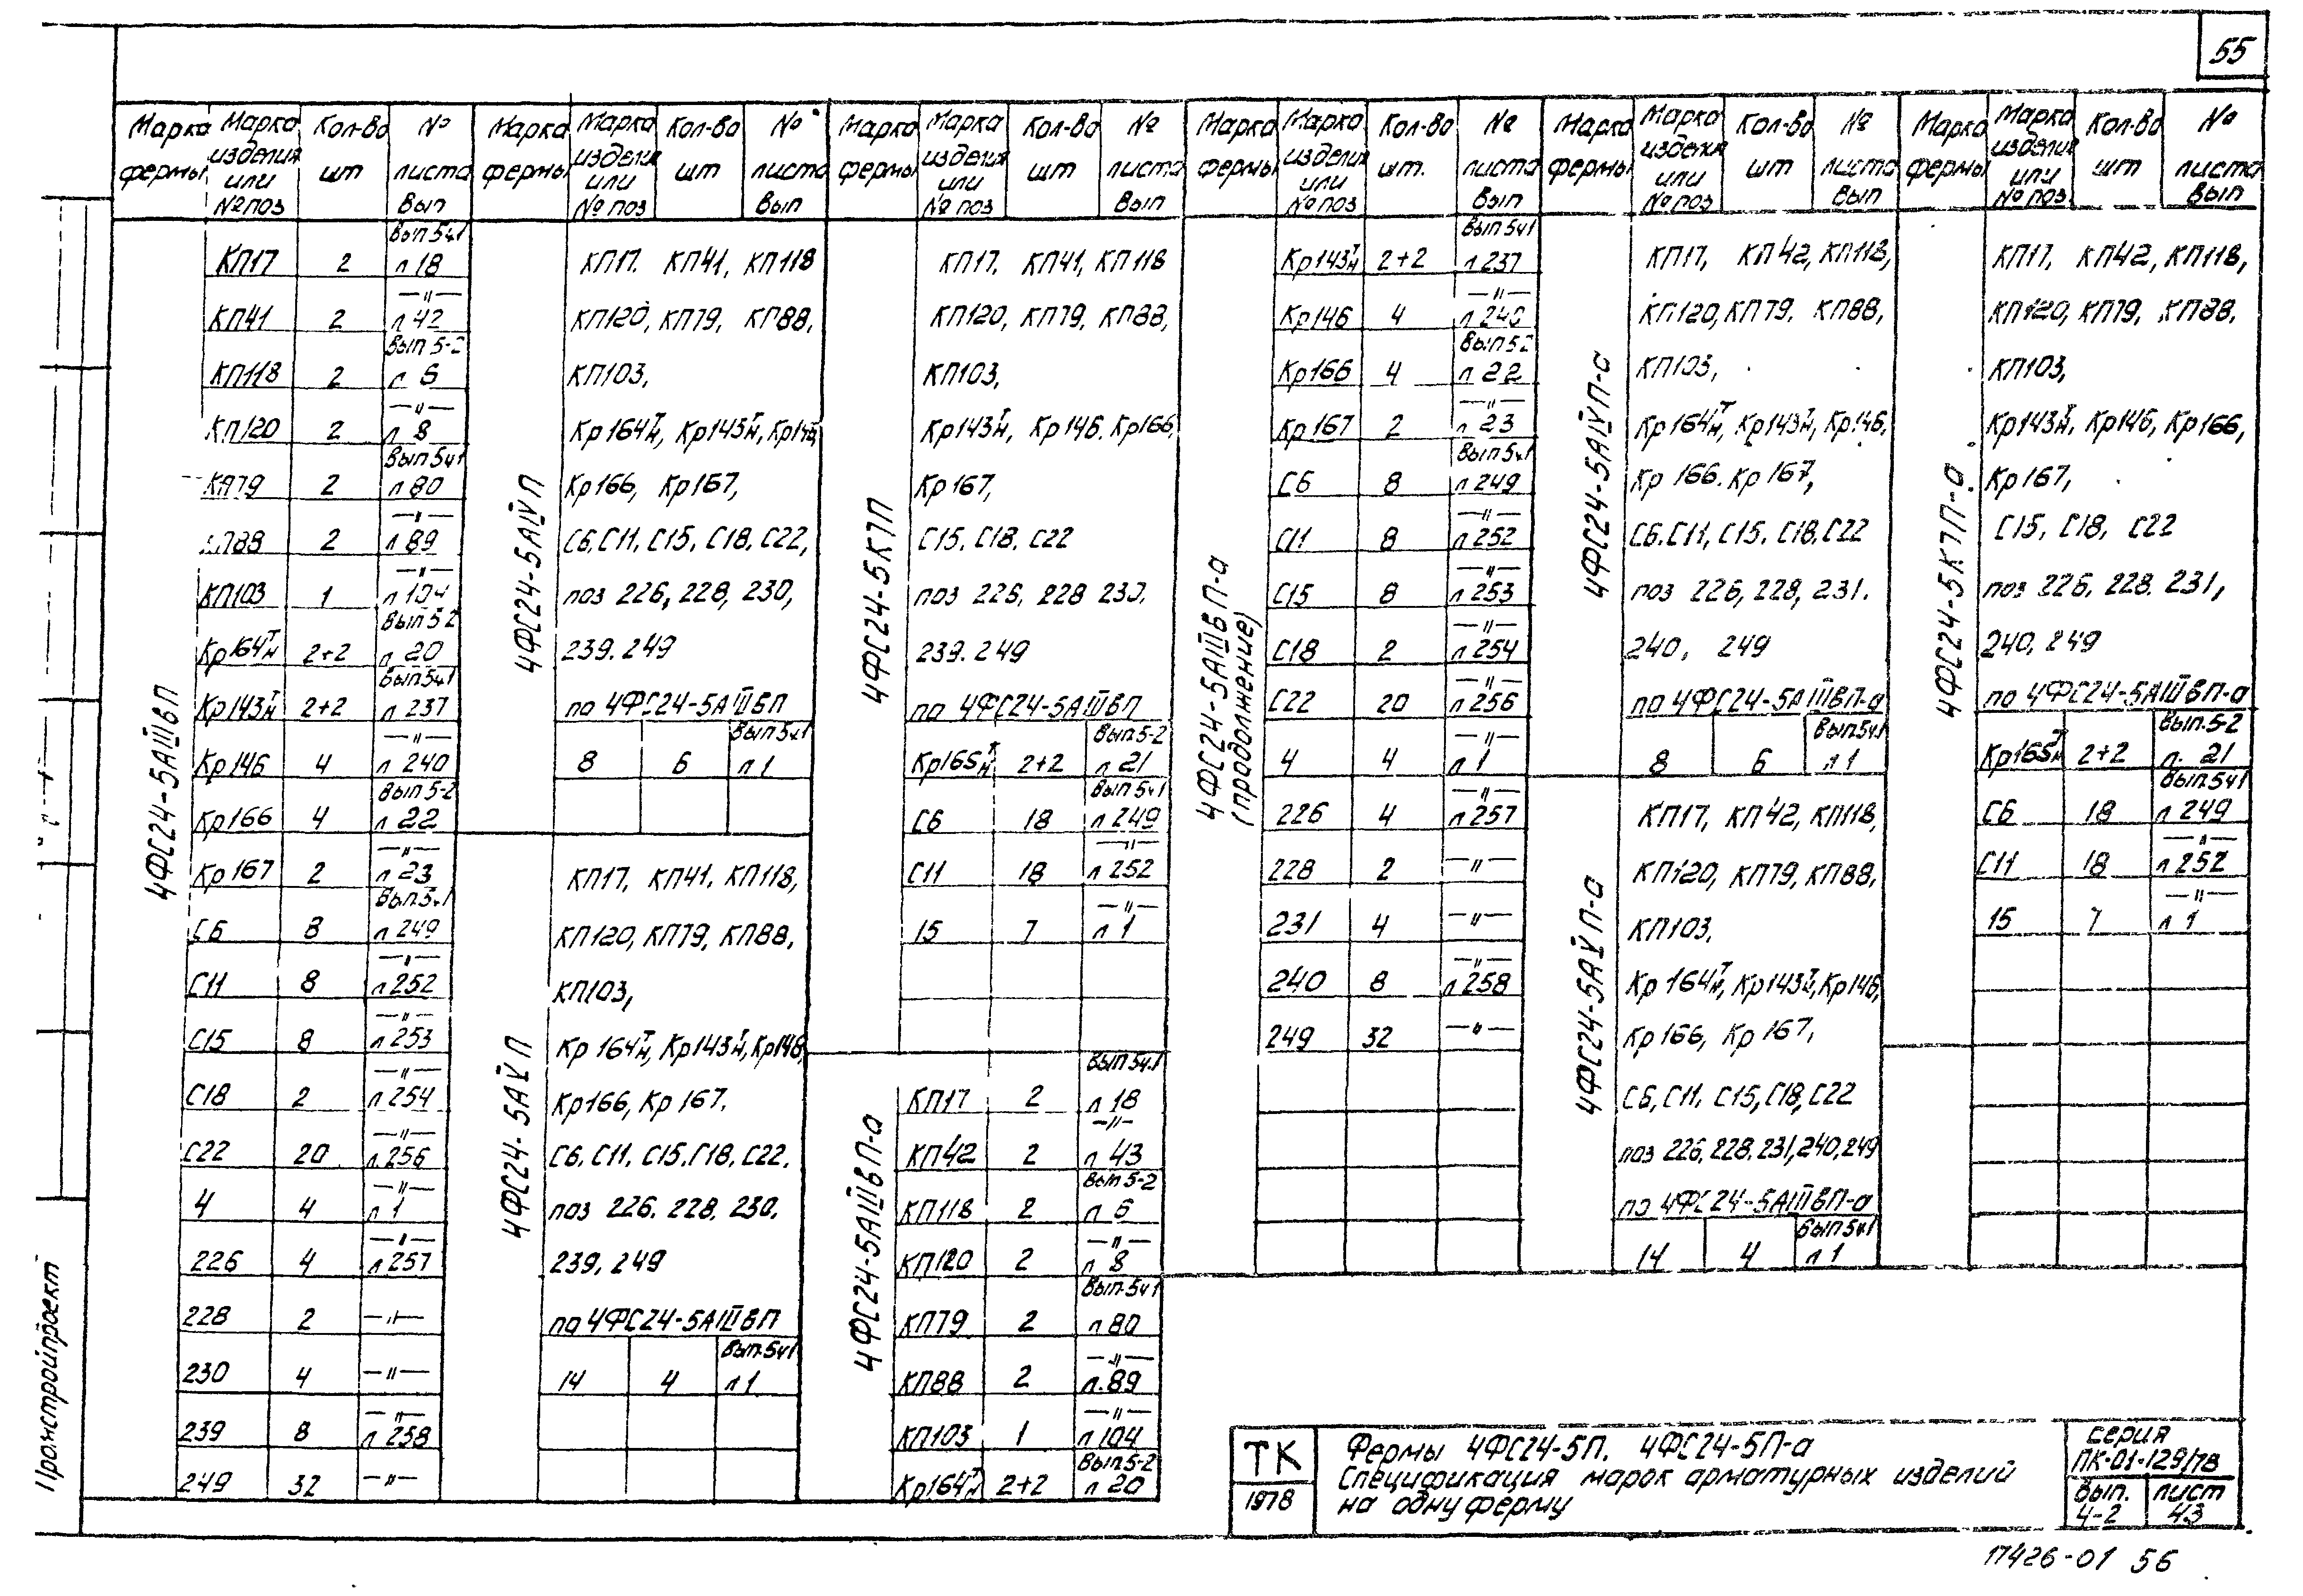 55
Марка фермы | Марка изделия или № поз | Кол-во шт | № листа Вып
Марка фермы | Марка изделия или № поз | Кол-во шт | № листа Вып
Марка фермы | Марка изделия или № поз | Кол-во шт | № листа Вып
Марка фермы | Марка изделия или № поз | Кол-во шт. | № листа Вып
Марка фермы | Марка изделия или № поз | Кол-во шт | № листа Вып
Марка фермы | Марка изделия или № поз | Кол-во шт | № листа Вып
4ФС24-5АIIIвП
КП17 2 Вып 5ч1 л 18
КП41 2 —"— л 42
КП118 2 Вып 5-2 л 6
КП120 2 —"— л 8
КП79 2 Вып 5ч1 л 80
КП88 2 —"— л 89
КП103 1 —"— л 104
Кр164Т/Н 2+2 Вып 5-2 л 20
Кр143Т/Н 2+2 Вып 5ч1 л 237
Кр146 4 —"— л 240
Кр166 4 Вып 5-2 л 22
Кр167 2 —"— л 23
С6 8 Вып 5ч1 л 249
С11 8 —"— л 252
С15 8 —"— л 253
С18 2 —"— л 254
С22 20 —"— л 256
4 4 —"— л 1
226 4 —"— л 257
228 2 —"—
230 4 —"—
239 8 —"— л 258
249 32 —"—
4ФС24-5АIVП
КП17. КП41, КП118
КП120, КП79, КП88,
КП103,
Кр164Т/Н, Кр143Т/Н, Кр146
Кр166, Кр167,
С6, С11, С15, С18, С22,
поз 226, 228, 230,
239. 249
по 4ФС24-5АIIIвП
8 6 Вып 5ч1 л 1
4ФС24-5АVП
КП17, КП41, КП118,
КП120, КП79, КП88,
КП103,
Кр164Т/Н, Кр143Т/Н, Кр146,
Кр166, Кр167.
С6. С11, С15, С18, С22.
поз 226. 228, 230.
239, 249
по 4ФС24-5АIIIвП
14 4 Вып. 5ч1 л 1
4ФС24-5К7П
КП17. КП41, КП118
КП120, КП79, КП88,
КП103,
Кр143Т/Н, Кр146. Кр166,
Кр167,
С15, С18, С22
поз 226, 228 230.
239. 249
по 4ФС24-5АIIIвП
Кр165Т/Н 2+2 Вып 5-2 л 21
С6 18 Вып 5ч1 л 249
С11 18 —"— л 252
15 7 —"— л 1
4ФС24-5АIIIвП-а
КП17 2 Вып 5ч.1 л 18
КП42 2 —"— л 43
КП118 2 Вып 5-2 л 6
КП120 2 —"— л 8
КП79 2 Вып. 5ч1 л 80
КП88 2 —"— л. 89
КП103 1 —"— л 104
Кр164Т/Н 2+2 Вып 5-2 л 20
4ФС24-5АIIIвП-а
(продолжение)
Кр143Т/Н 2+2 Вып 5ч1 л 237
Кр146 4 —"— л 240
Кр166 4 Вып 5-2 л 22
Кр167 2 —"— л 23
С6 8 Вып 5ч1 л 249
С11 8 —"— л 252
С15 8 —"— л 253
С18 2 —"— л 254
С22 20 —"— л 256
4 4 —"— л 1
226 4 —"— л 257
228 2 —"—
231 4 —"—
240 8 —"— л 258
249 32 —"—
4ФС24-5АIVП-а
КП17, КП42, КП118,
КП120, КП79. КП88,
КП103,
Кр164Т/Н, Кр143Т/Н, Кр146,
Кр166. Кр167,
С6. С11, С15. С18, С22
поз 226, 228, 231.
240, 249
по 4ФС24-5АIIIвП-а
8 6 Вып 5ч1 л 1
4ФС24-5АVП-а
КП17, КП42, КП118,
КП120, КП79, КП88,
КП103,
Кр164Т/Н, Кр143Т/Н, Кр146,
Кр166, Кр167,
С6, С11, С15, С18, С22
поз 226, 228, 231, 240, 249
по 4ФС24-5АIIIвП-а
14 4 Вып 5ч1 л 1
4ФС24-5К7П-а
КП17, КП42, КП118,
КП120, КП79, КП88,
КП103,
Кр143Т/Н, Кр146, Кр166,
Кр167,
С15, С18, С22
поз 226, 228. 231,
240, 249
по 4ФС24-5АIIIвП-а
Кр165Т/Н 2+2 Вып. 5-2 л. 21
С6 18 Вып. 5ч1 л 249
С11 18 —"— л 252
15 7 —"— л 1
Промстройпроект
ТК
1978
Фермы 4ФС24-5П. 4ФС24-5П-а
Спецификация марок арматурных изделий
на одну ферму
серия
ПК-01-129/78
Вып. 4-2
лист 43
17426-01 56